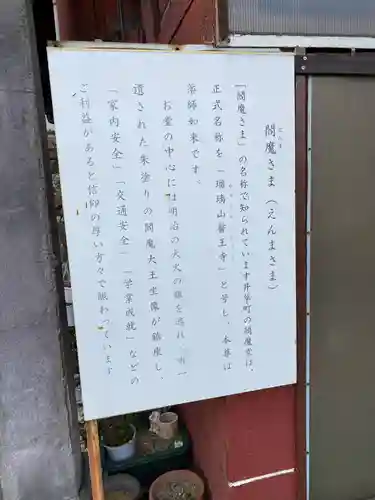 閻魔さま（えんまさま）
「閻魔さま」の名称で知られています井草町の閻魔堂は、
正式名称を「瑠璃山醫王寺」と号し、本尊は
薬師如来です。
お堂の中心には明治の大火の難を逃れ、唯一
遺された朱塗りの閻魔大王坐像が鎮座し、
「家内安全」「交通安全」「学業成就」などの
ご利益があると信仰の厚い方々で賑わっています